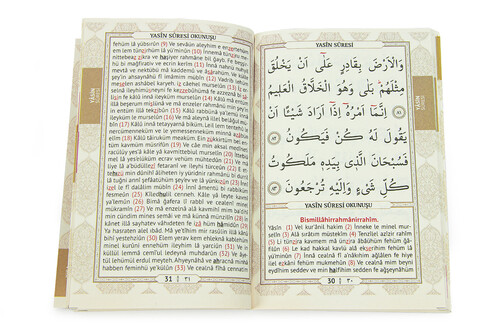 YASİN SÛRESİ
وَالْاَرْضَ بِقَادِرٍ عَلٰٓى اَنْ يَخْلُقَ
مِثْلَهُمْ بَلٰى وَهُوَ الْخَلَّاقُ الْعَلِيمُ
﴿٨١﴾ اِنَّمَٓا اَمْرُهُٓ اِذَٓا اَرَادَ شَيْئًا اَنْ
يَقُولَ لَهُ كُنْ فَيَكُونُ ﴿٨٢﴾
فَسُبْحَانَ الَّذِي بِيَدِهِ مَلَكُوتُ
كُلِّ شَيْءٍ وَاِلَيْهِ تُرْجَعُونَ ﴿٨٣﴾
YASİN SÛRESİ OKUNUŞU
Bismillâhirrahmânirrahîm.
Yâsîn (1) Vel kurânil hakîm (2) İnneke le minel mur-
selîn (3) Alâ sırâtın müstekîm (4) Tenzîlel azîzir rahîm
(5) Li tünzira kavmem mâ ünzira âbâühüm fehüm gâ-
filûn (6) Le kad hakkal kavlü alâ ekserihim fehüm lâ
yü'minûn (7) İnnâ cealnâ fî a'nâkıhim ağlâlen fe hiye
ilel ezkâni fehüm mukmehûn (8) Ve cealnâ mim beyni
eydîhim sedden ve min halfihim sedden fe ağşeynâhüm
30 | ٣٠
YÂSİN
SÛRESİ
YASİN SÛRESİ OKUNUŞU
fehüm lâ yübsırûn (9) Ve sevâün aleyhim e enzertehüm
em lem tünzirhüm lâ yü'minûn (10) İnnemâ tünziru me-
nittebeaz zikra ve haşiyer rahmâne bil ğayb. Fe beşşirhü
bi mağfirativ ve ecrin kerîm (11) İnnâ nahnü nuhyil
mevtâ ve nektübü mâ kaddemû ve âsârahüm ve külle
şey'in ahsaynâhü fî imâmim mübîn (12) Vadrib lehüm
meselen ashâbel karyeh. İz câehel murselûn (13) İz er-
selnâ ileyhimüsneyni fe kezzebûhümâ fe azzeznâ bi
sâlisin fe kâlû innâ ileyküm murselûn (14) Kâlû mâ entüm
illâ beşerum mislünâ ve mâ enzeler rahmânü min şey'in
in entüm illâ tekzibûn (15) Kâlû rabbünâ ya'lemü innâ
ileyküm le murselûn (16) Ve mâ aleynâ illel belâğul mü-
bîn (17) Kâlû innâ tetayyarnâ biküm. Leil lem tentehû le
nercümenneküm ve le yemessenneküm minnâ azâbün
elîm (18) Kâlû tâiruküm meaküm. Ein zükkirtüm. Bel
entüm kavmüm müsrifûn (19) Ve câe min aksal medîneti
racülüy yes'â kâle yâ kavmittebiul murselîn (20) İttebiû
mel lâ yes'elüküm ecrav vehüm mühtedûn (21) Ve mâ
liye lâ a'büdüllezî fetaranî ve ileyhi türceûn (22) Eette-
hızü min dûnihî âliheten iy yüridnir rahmânü bi durril
lâ tuğni annî şefâatühüm şey'ev ve lâ yünkızûn (23) İnnî
izel le fî dalâlim mübîn (24) İnnî âmentü bi rabbiküm
fesmeûn (25) Kîledhulil cenneh. Kâle yâ leyte kavmî
ya'lemûn (26) Bimâ ğafera lî rabbî ve cealenî minel
mükramîn (27) Ve mâ enzelnâ alâ kavmihî mim ba'dihî
min cündim mines semâi ve mâ künnâ münzilîn (28) İn
kânet illâ sayhatev vâhideten fe izâ hüm hâmidûn (29)
Ya hasraten alel ıbâd. Mâ ye'tîhim mir rasûlin illâ kânû
bihî yestehziûn (30) Elem yerav kem ehleknâ kablehüm
minel kurûni ennehüm ileyhim lâ yarciûn (31) Ve in
küllül lemmâ cemîul ledeynâ muhdarûn (32) Ve âye-
tül lehümül erdul meyteh. Ahyeynâhâ ve ahracnâ minhâ
habben feminhü ye'külûn (33) Ve cealnâ fîhâ cennâtim
31 | ٣١
YÂSİN
SÛRESİ